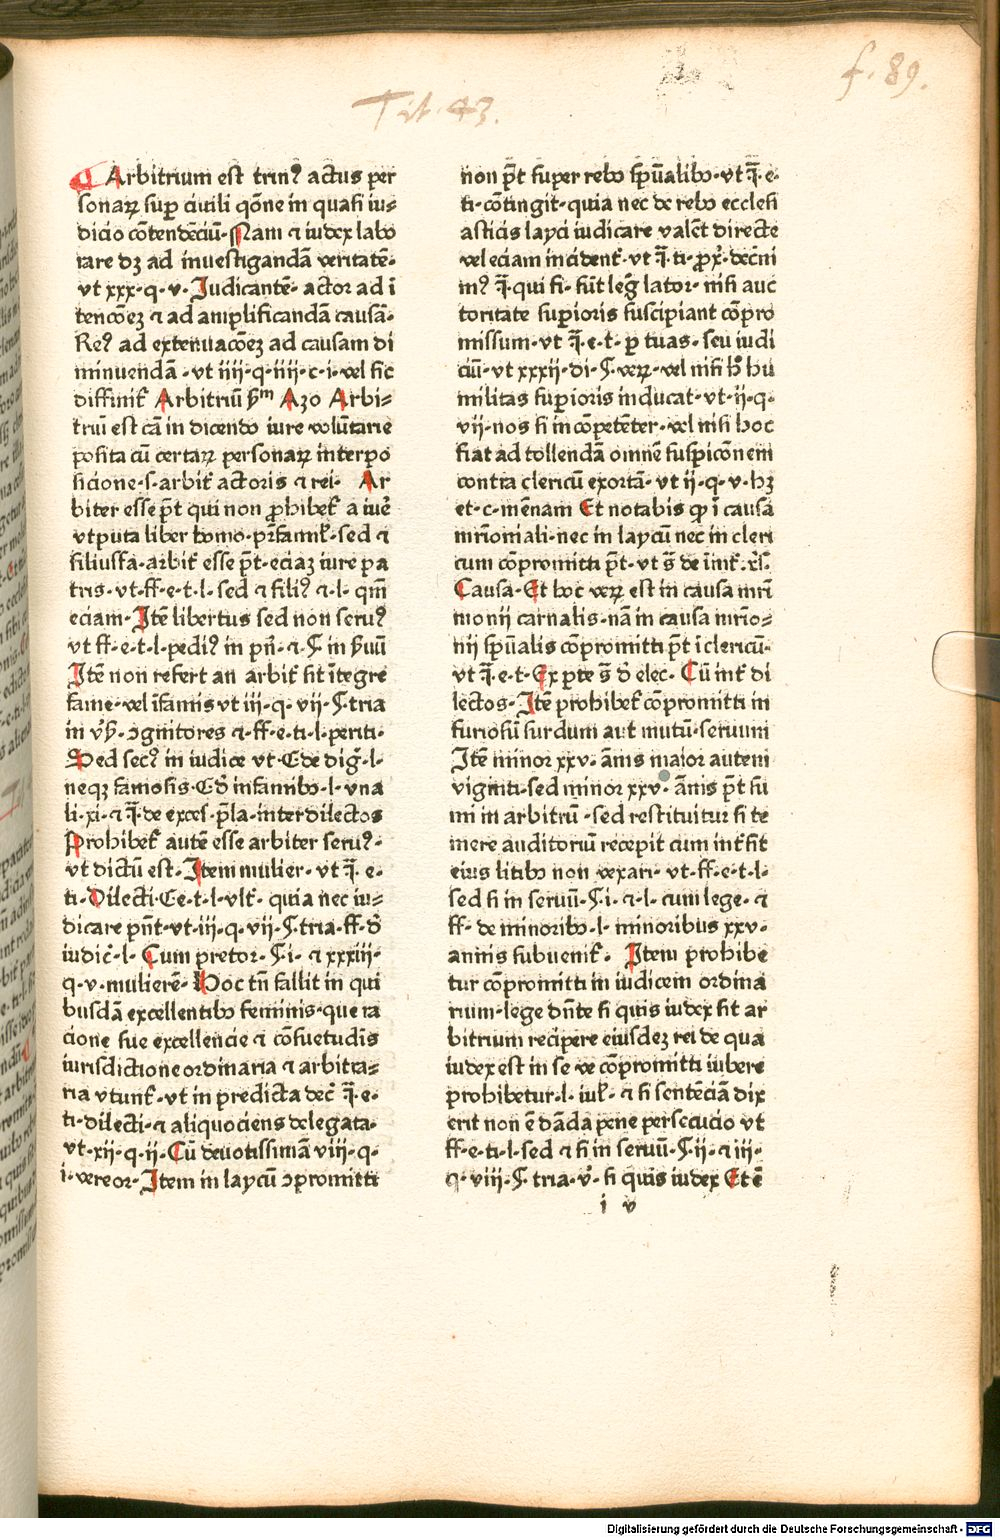 f. 89.
Tit. 43.
Arbitrium est trinꝰ actus per
sonaꝝ sup̱ ciuili q̄one in quasi iu⸗
dicio cōtendēciū· Nam ⁊ iudex labo
rare dꝫ ad inuestigandā veritatē·
vt xxx·q·v· Judicantē· actor ad ī
tencōeꝫ ⁊ ad amplificandā causā·
Reꝰ ad extenuacōeꝫ ad causam di
minuendā ·vt iiii·q·iiii·c·i·vel sic
diffinit᷑ Arbitriū ẜm Azo Arbi⸗
triū est cā in dicendo iure volūtarie
posita cū certaꝝ personaꝝ interpo
sicione·s·arbit᷑ actoris ⁊ rei· Ar
biter esse p̄t qui non ꝓhibet᷑ a iuē
vtputa liber homo·pr̄famil᷑·sed ⁊
filiusfa·arbit᷑ esse p̄t·eciaꝫ iure pa
tris·vt·ff·e·t·l·sed ⁊ filiꝰ ⁊·l·qm̄
eciam·Itē libertus sed non seruꝰ
vt ff·e·t·l·pediꝰ in pn̄·⁊·§ in ẜuū
Itē non refert an arbit᷑ sit ītegre
fame·vel īfamis vt iii·q·vii·§·tria
in v̄ẜ·ꝯgnitores ⁊·ff·e·ti·l·periti·
Sed secꝰ in iudice vt·C de diḡ·l·
neqꝫ famosis·C d̄ infamibꝰ·l·vna
li·xi·⁊ q̄·de exces·p̄la·inter dilectos
Prohibet᷑ autē esse arbiter seruꝰ·
vt dictū est·Item mulier·vt q̄·e·
ti·Dilecti·C e·t·l·vlt᷑·quia nec iu⸗
dicare pn̄t·vt·iii·q·vii·§·tria·ff·d̄
iudic̄·l·Cum pretor·§·i·⁊ xxxiii·
q·v·mulierē·Hoc tn̄ fallit in qui
busdā excellentibꝰ feminis·que ra
cione sue excellencie ⁊ cōsuetudīs
iurisdictione ordinaria ⁊ arbitra⸗
ria vtunt᷑·vt in predicta dec̄ q̄·e·
ti·dilecti·⁊ aliquociens delegata·
vt·xii·q·ii·Cū deuotissimā viii·q·
i·vereor·Item in laycū ꝯpromitti
non p̄t super rebꝰ sp̄ualibꝰ·vt q̄·e·
ti·cōtingit·quia nec de rebꝰ ecclesi
asticis layci iudicare valēt directe
vel eciam incident᷑·vt q̄·ti·ꝓx̄·decn̄i
mꝰ q̄·qui fi·sūt leḡ lator·nisi auc
toritate sup̱ioris suscipiant cōpro
missum·vt q̄·e·t·p̱ tuas·seu iudi
ciū·vt xxxii·di·§·veꝝ·vel nisi hͦ hu
militas sup̱ioris inducat·vt·ii·q·
vii·nos si incōpetēter·vel nisi hoc
fiat ad tollendā omnē suspicōnem
contra clericū exortā·vt ii·q·v·hꝫ
et·c·mēnam Et notabis ꝙ ī causa
mr̄imōiali·nec in laycū nec in cleri
cum cōpromitti p̄t·vt s̄ de īint᷑·r̄i·
Causa·Et hoc veꝝ est in causa mr̄i
monii carnalis·nā in causa mr̄io⸗
nii sp̄ualis cōpromitti p̄t ī clericū·
vt q̄·e·t·Ex p̱te s̄ d̄ elec·Cū int᷑ di
lectos·Itē prohibet᷑ cōpromitti in
furiosū surdum aut mutū·seruum
Itē minor xxv·ānis maior autem
viginti·sed minor xxv·ānis p̄t su
mi in arbitrū·sed restituitur si te
mere auditoriū recepit cum int᷑sit
eius litibꝰ non vexari·vt·ff·e·t·l·
sed si in seruū·§·i·⁊·l·cum lege·⁊
ff·de minoribꝰ·l·minoribus xxv·
annis subuenit᷑· Item prohibe
tur cōpromitti in iudicem ordina
rium·lege dn̄te si quis iudex sit ar
bitrium recipere eiusdeꝫ rei de qua
iudex est in se ve cōpromitti iubere
prohibetur·l·iul᷑·⁊ si sentēciā dix
erit non ē dāda pene persecucio vt
ff·e·ti·l·sed ⁊ si in seruū·§·ii·⁊ iii·
q·viii·§·tria·v̄·si quis iudex Et ē
i v
Digitalisierung gefördert durch die Deutsche Forschungsgemeinschaft - DFG